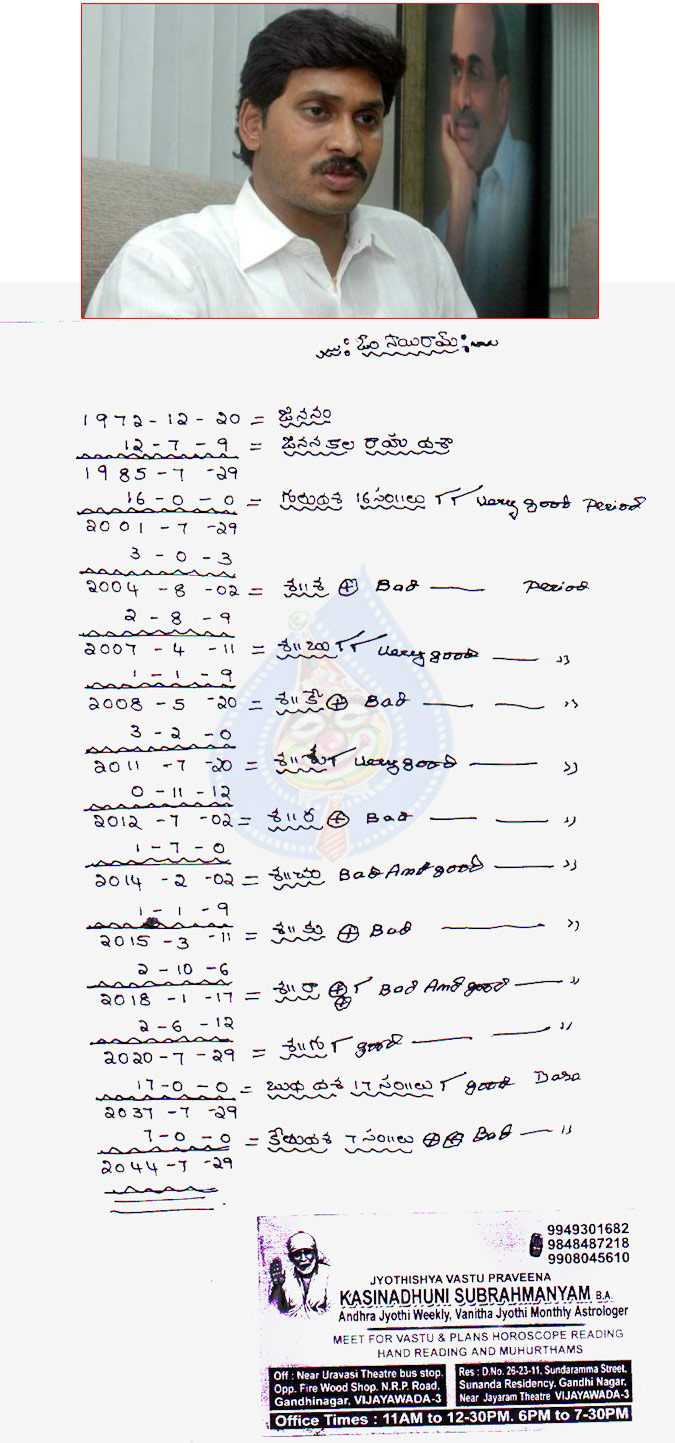 ఓం సాయిరామ్
1972-12-20 = జననం
12-7-9 = జననకాల రాహు దశా
1985-7-29
16-0-0 = గురుదశ 16 సం॥లు Very good Period
2001-7-29
3-0-3
2004-8-02 = శ॥శ ⊕ Bad — Period
2-8-9
2007-4-11 = శ॥బు Very good — ,,
1-1-9
2008-5-20 = శ॥కే ⊕ Bad — — ,,
3-2-0
2011-7-20 = శ॥శు Very good — ,,
0-11-12
2012-7-02 = శ॥ర ⊕ Bad — — ,,
1-7-0
2014-2-02 = శ॥చం Bad And good — ,,
1-1-9
2015-3-11 = శ॥కు ⊕ Bad — ,,
2-10-6
2018-1-17 = శ॥రా ⊕ ⊕ Bad And good — ,,
2-6-12
2020-7-29 = శ॥గు good — — ,,
17-0-0 = బుధ దశ 17 సం॥లు good Dasa
2037-7-29
7-0-0 = కేతుదశ 7 సం॥లు ⊕⊕ Bad — ,,
2044-7-29
9949301682
9848487218
9908045610
JYOTHISHYA VASTU PRAVEENA
KASINADHUNI SUBRAHMANYAM B.A.
Andhra Jyothi Weekly, Vanitha Jyothi Monthly Astrologer
MEET FOR VASTU & PLANS HOROSCOPE READING
HAND READING AND MUHURTHAMS
Off : Near Uravasi Theatre bus stop.
Opp. Fire Wood Shop. N.R.P. Road,
Gandhinagar, VIJAYAWADA-3
Res : D.No. 26-23-11, Sundaramma Street,
Sunanda Residency, Gandhi Nagar,
Near Jayaram Theatre VIJAYAWADA-3
Office Times : 11AM to 12-30PM. 6PM to 7-30PM